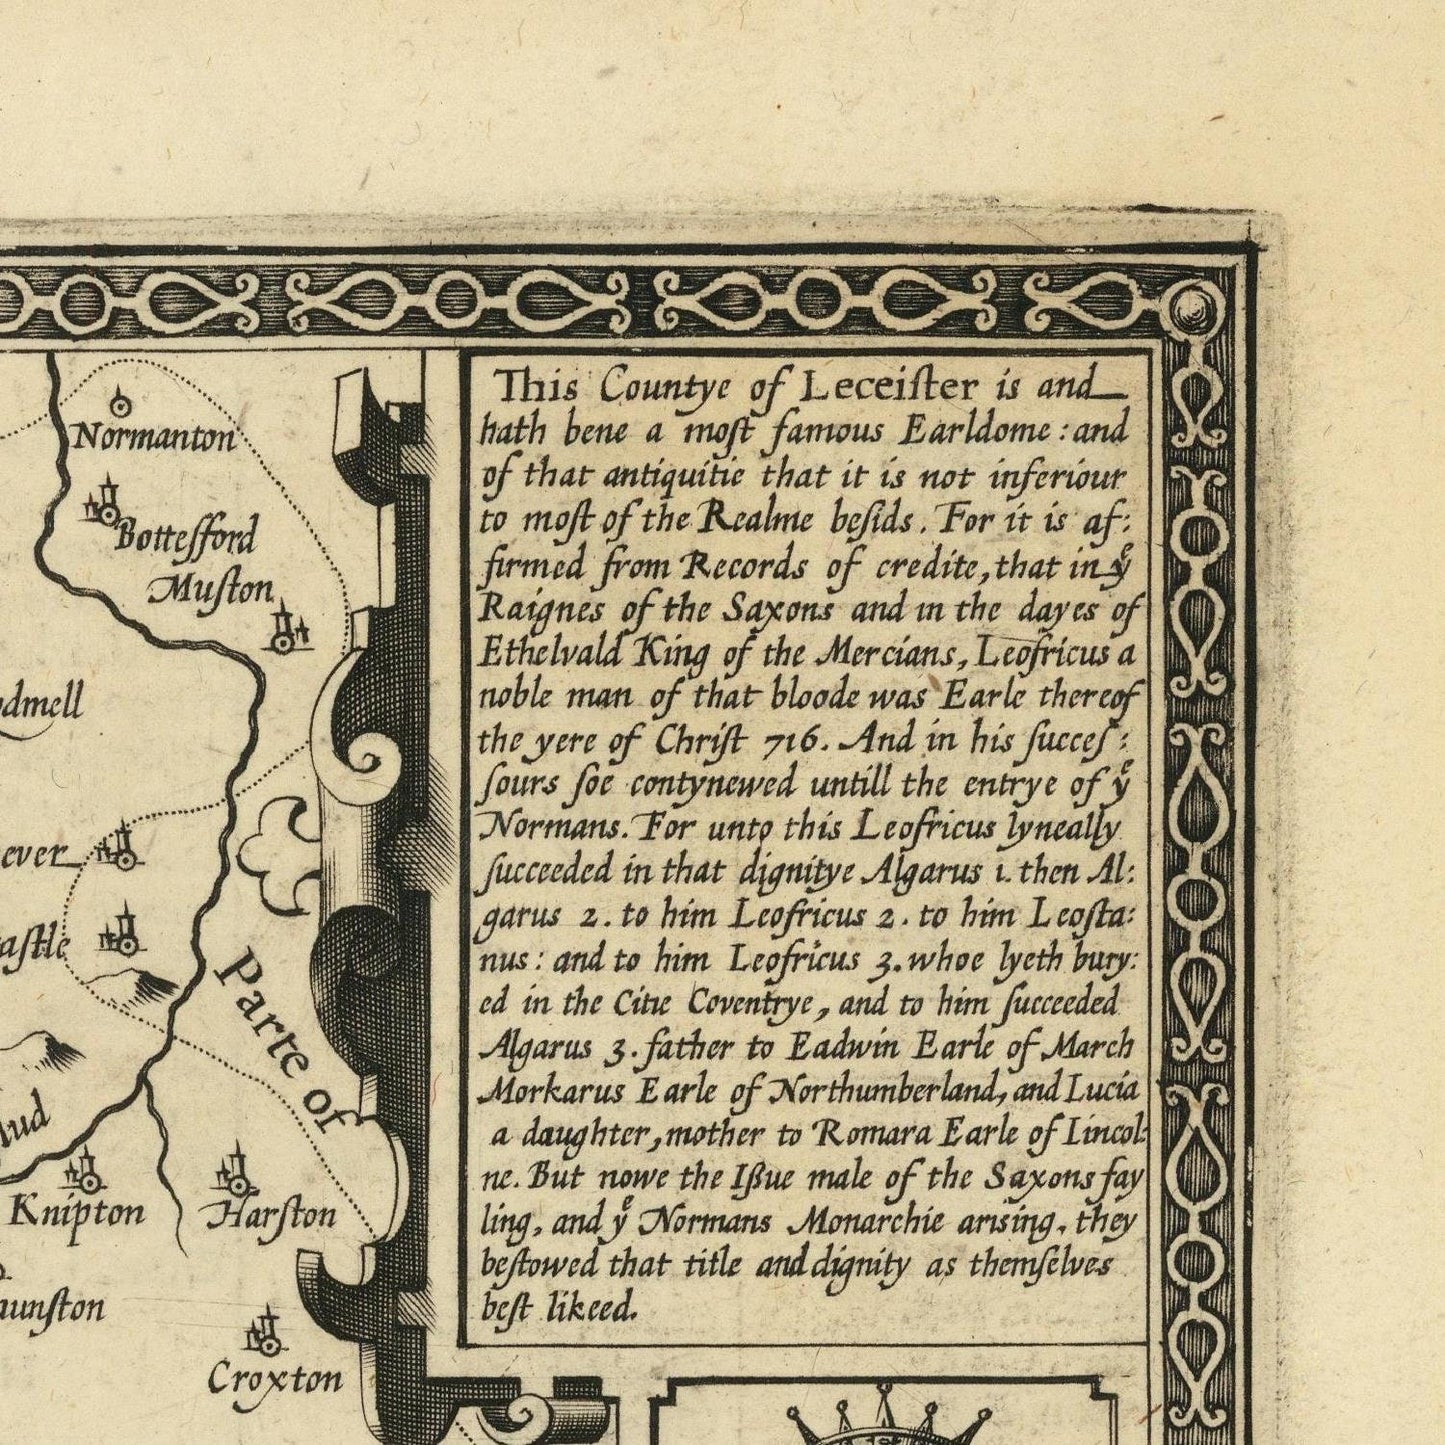 This Countye of Leceiſter is and
hath bene a moſt famous Earldome : and
of that antiquitie that it is not inferiour
to moſt of the Realme beſids. For it is af:
firmed from Records of credite, that in yͤ
Raignes of the Saxons and in the dayes of
Ethelvald King of the Mercians, Leofricus a
noble man of that bloode was Earle thereof
the yere of Chriſt 716. And in his ſucceſ:
ſours ſoe contynewed untill the entrye of yͤ
Normans. For unto this Leofricus lyneally
ſucceeded in that dignitye Algarus 1. then Al:
garus 2. to him Leofricus 2. to him Leoſta:
nus: and to him Leofricus 3. whoe lyeth bury:
ed in the Citie Coventrye, and to him ſucceeded
Algarus 3. father to Eadwin Earle of March
Morkarus Earle of Northumberland, and Lucia
a daughter, mother to Romara Earle of Lincol:
ne. But nowe the Iſsue male of the Saxons fay
ling, and yͤ Normans Monarchie arising, they
beſtowed that title and dignity as themſelves
beſt likeed.
Normanton
Botteſford
Muſton
dmell
ever
aſtle
Parte of
Knipton
Harſton
unſton
Croxton